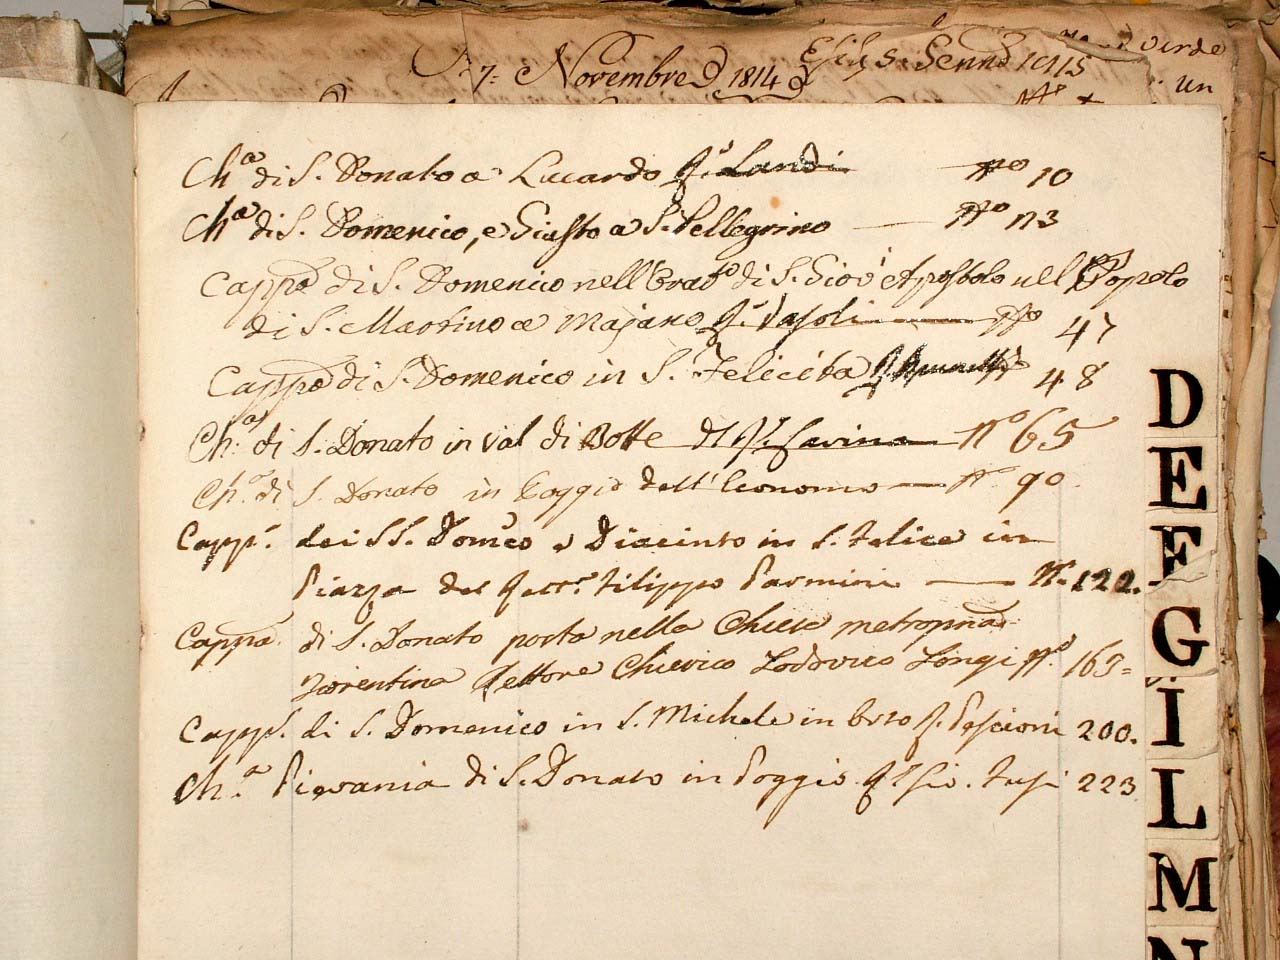 7: Novembre 1814
verde
un
Ch.ª di S. Donato a Lucardo Landi N.º 10
Ch.ª di S. Domenico, e Giusto a S. Pellegrino — N.º 113
Capp.ª di S. Domenico nell'Orat.º di S. Gio: Apostolo nel Popolo
di S. Martino a Majano Vasoli — N.º 47
Capp.ª di S. Domenico in S. Felicita 48
Ch.ª di S. Donato in Val di Botte N.º 65
Ch.ª di S. Donato in Poggio dell'Economo — N.º 90
Capp.ª dei SS. Dom.co e Diacinto in S. Felice in
Piazza del Rett.re Filippo Parmini — N.º 122.
Capp.ª di S. Donato posta nella Chiesa metropna
Fiorentina Rettore Chierico Lodovico Longi N.º 163=
Capp.ª di S. Domenico in S. Michele in Orto Pescioni 200.
Ch.ª Pievania di S. Donato in Poggio Gio. Fusi 223
D
E
F
G
I
L
M
N